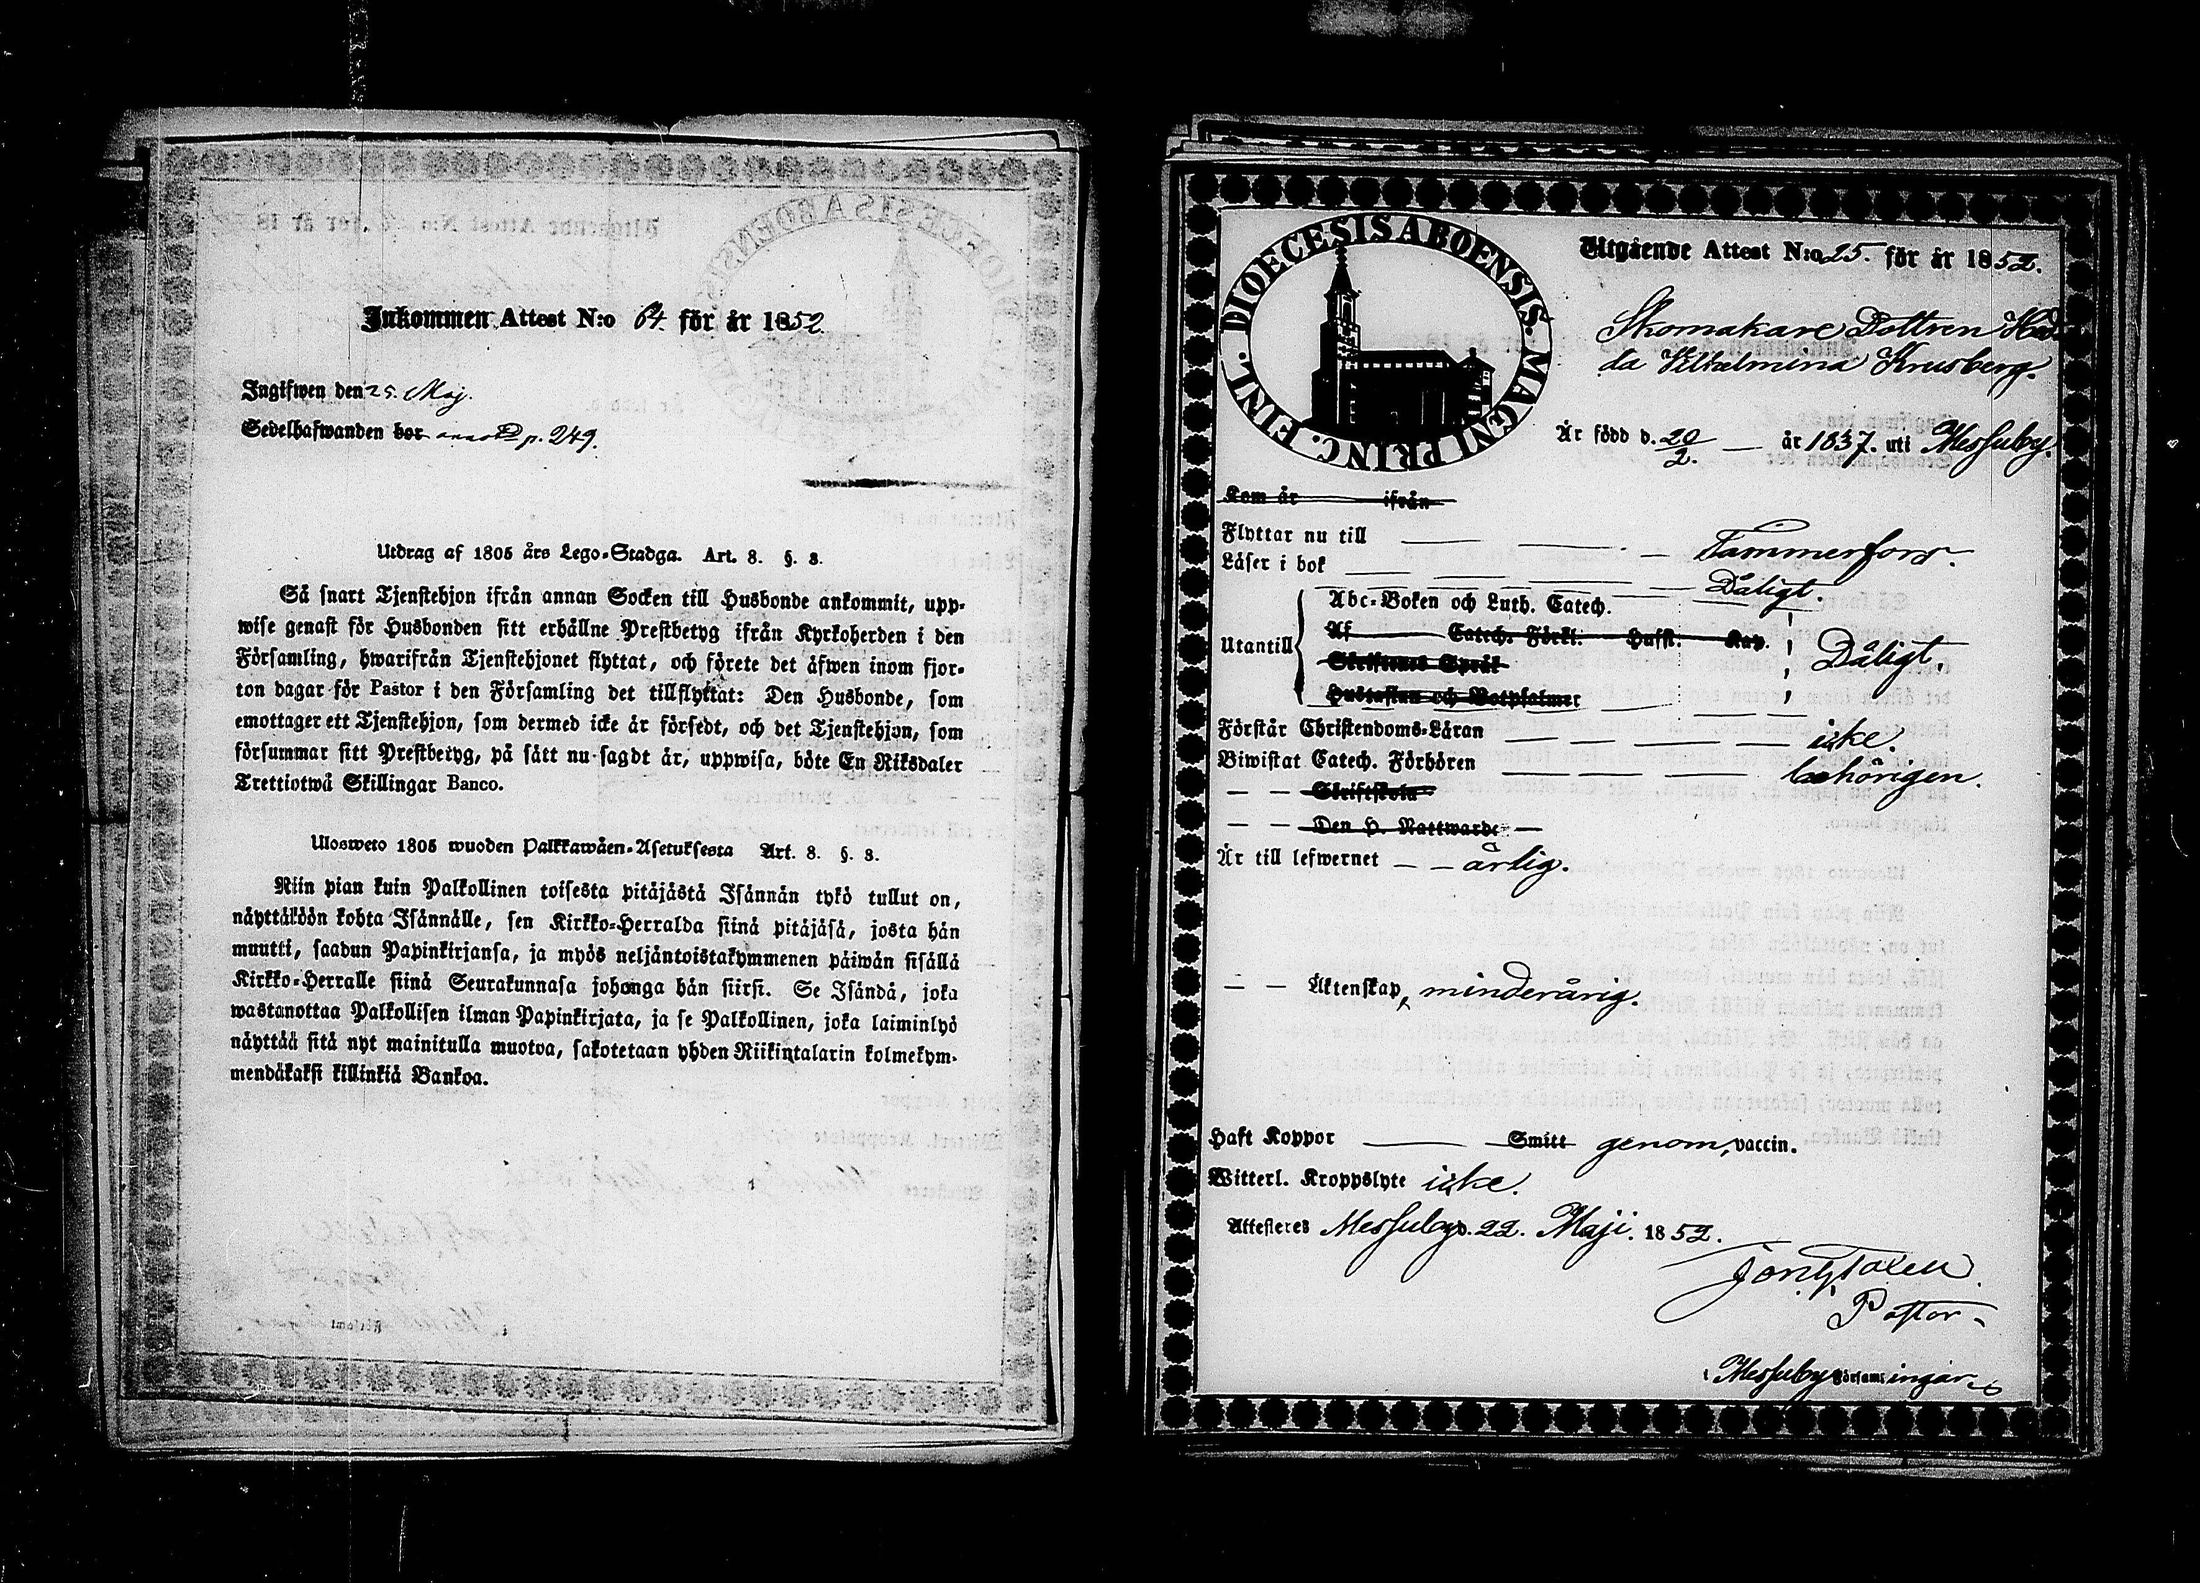 Inkommen Attest N:o 64. för år 1852
Ingifwen den 25. Maj.
Sedelhafwanden bor p. 249.
Utdrag af 1805 års Lego-Stadga. Art. 8. §. 3.
Så snart Tjenstehjon ifrån annan Socken till Husbonde ankommit, upp-
wise genast för Husbonden sitt erhållne Prestbetyg ifrån Kyrkoherden i den
Församling, hwarifrån Tjenstehjonet flyttat, och förete det äfwen inom fjor-
ton dagar för Pastor i den Församling det tillflyttat: Den Husbonde, som
emottager ett Tjenstehjon, som dermed icke är försedt, och det Tjenstehjon, som
försummar sitt Prestbetyg, på sätt nu sagdt är, uppwisa, böte En Riksdaler
Trettiotwå Skillingar Banco.
Ulosweto 1805 wuoden Palkkawäen-Asetuksesta Art. 8. §. 3.
Niin pian kuin Palkollinen toisesta pitäjästä Isännän tykö tullut on,
näyttäköön kohta Isännälle, sen Kirkko-Herralda siinä pitäjäsä, josta hän
muutti, saadun Papinkirjansa, ja myös neljäntoistakymmenen päiwän sisällä
Kirkko-Herralle siinä Seurakunnasa johonga hän siirsi. Se Isändä, joka
wastanottaa Palkollisen ilman Papinkirjata, ja se Palkollinen, joka laiminlyö
näyttää sitä nyt mainitulla muotoa, sakotetaan yhden Riikintalarin kolmekym-
mendäkaksi killinkiä Bankoa.
DIOECESIS ABOENSIS. MAGNI PRINC. FINL.
Utgående Attest N:o 25. för år 1852.
Skomakare Dottren Hed
da Vilhelmina Krusberg.
Är född d. 20/2. — år 1837. uti Messuby.
Kom år ifrån
Flyttar nu till — — — Tammerfors.
Läser i bok — — — — Dåligt.
Abc-Boken och Luth. Catech.
Utantill Af Catech. Förkl. Hussl. Kap. Dåligt.
Skriftenes Språk
Hustaflan och Botpsalmer
Förstår Christendoms-Läran — — — — icke.
Biwistat Catech. Förhören — — — — behörigen.
— — Skriftskola
— — Den H. Nattwarde —
Är till lefwernet — — ärlig.
— — Äktenskap, minderårig.
Haft Koppor — Smitt genom, vaccin.
Witterl. Kroppslyte icke.
Attesteres Messuby d. 22. Maji. 1852.
Pastor
i Messuby Församlingar